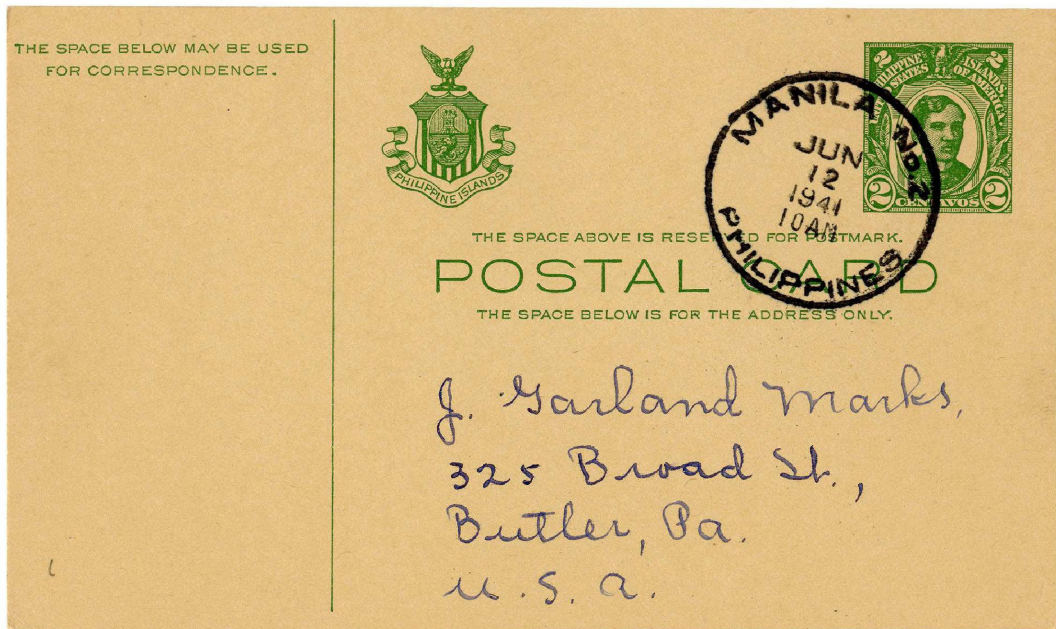 THE SPACE BELOW MAY BE USED
FOR CORRESPONDENCE.
PHILIPPINE ISLANDS
2 2
PHILIPPINE ISLANDS
UNITED STATES OF AMERICA
2 CENTAVOS 2
MANILA No.2
JUN
12
1941
10AM
PHILIPPINES
THE SPACE ABOVE IS RESERVED FOR POSTMARK.
POSTAL CARD
THE SPACE BELOW IS FOR THE ADDRESS ONLY.
J. Garland Marks,
325 Broad St.,
Butler, Pa.
U. S. A.